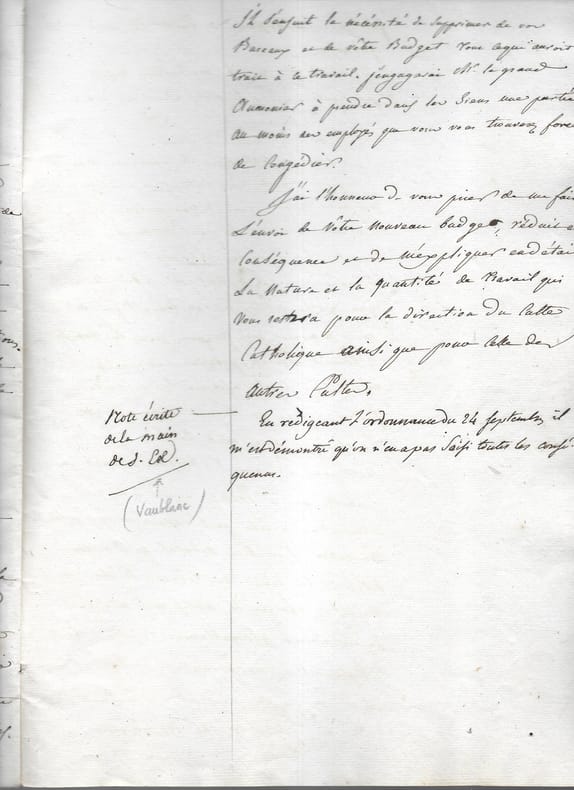 S'il s'ensuit la nécessité de supprimer de vos
Bureaux et de vôtre Budget tout ce qui auroit
trait à ce travail. j'engagerai Mr. le grand
Aumonier à prendre dans les Siens une partie
au moins des employés que vous vous trouverez forcé
de Congédier.
J'ai l'honneur de vous prier de me fai
L'envoi de Vôtre Nouveau budget, réduit e
Conséquence et de M'expliquer en détai
La Nature et la quantité de Travail qui
Vous restera pour la direction du Culte
Catholique ainsi que pour celle des
autres Cultes.
Note écrite
de la main
de S. Ex.
(Vaublanc)
En rédigeant l'ordonnance du 24 septembre, il
m'est démontré qu'on n'en a pas Saisi toutes les consé-
quences.